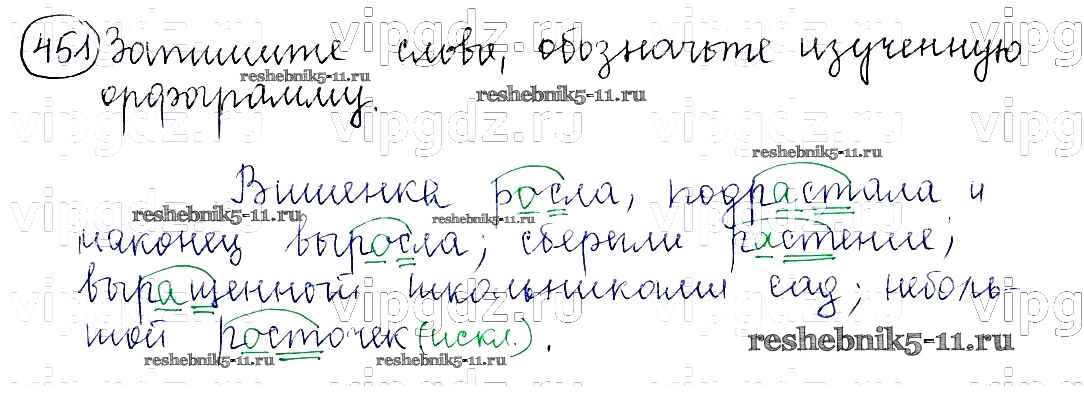 451 Запишите слова, обозначьте изученную
орфограмму.
Вишенка росла, подрастала и
наконец выросла; сберегли растение;
выращенный школьниками сад; неболь-
шой росточек (искл.).
vipgdz.ru
reshebnik5-11.ru